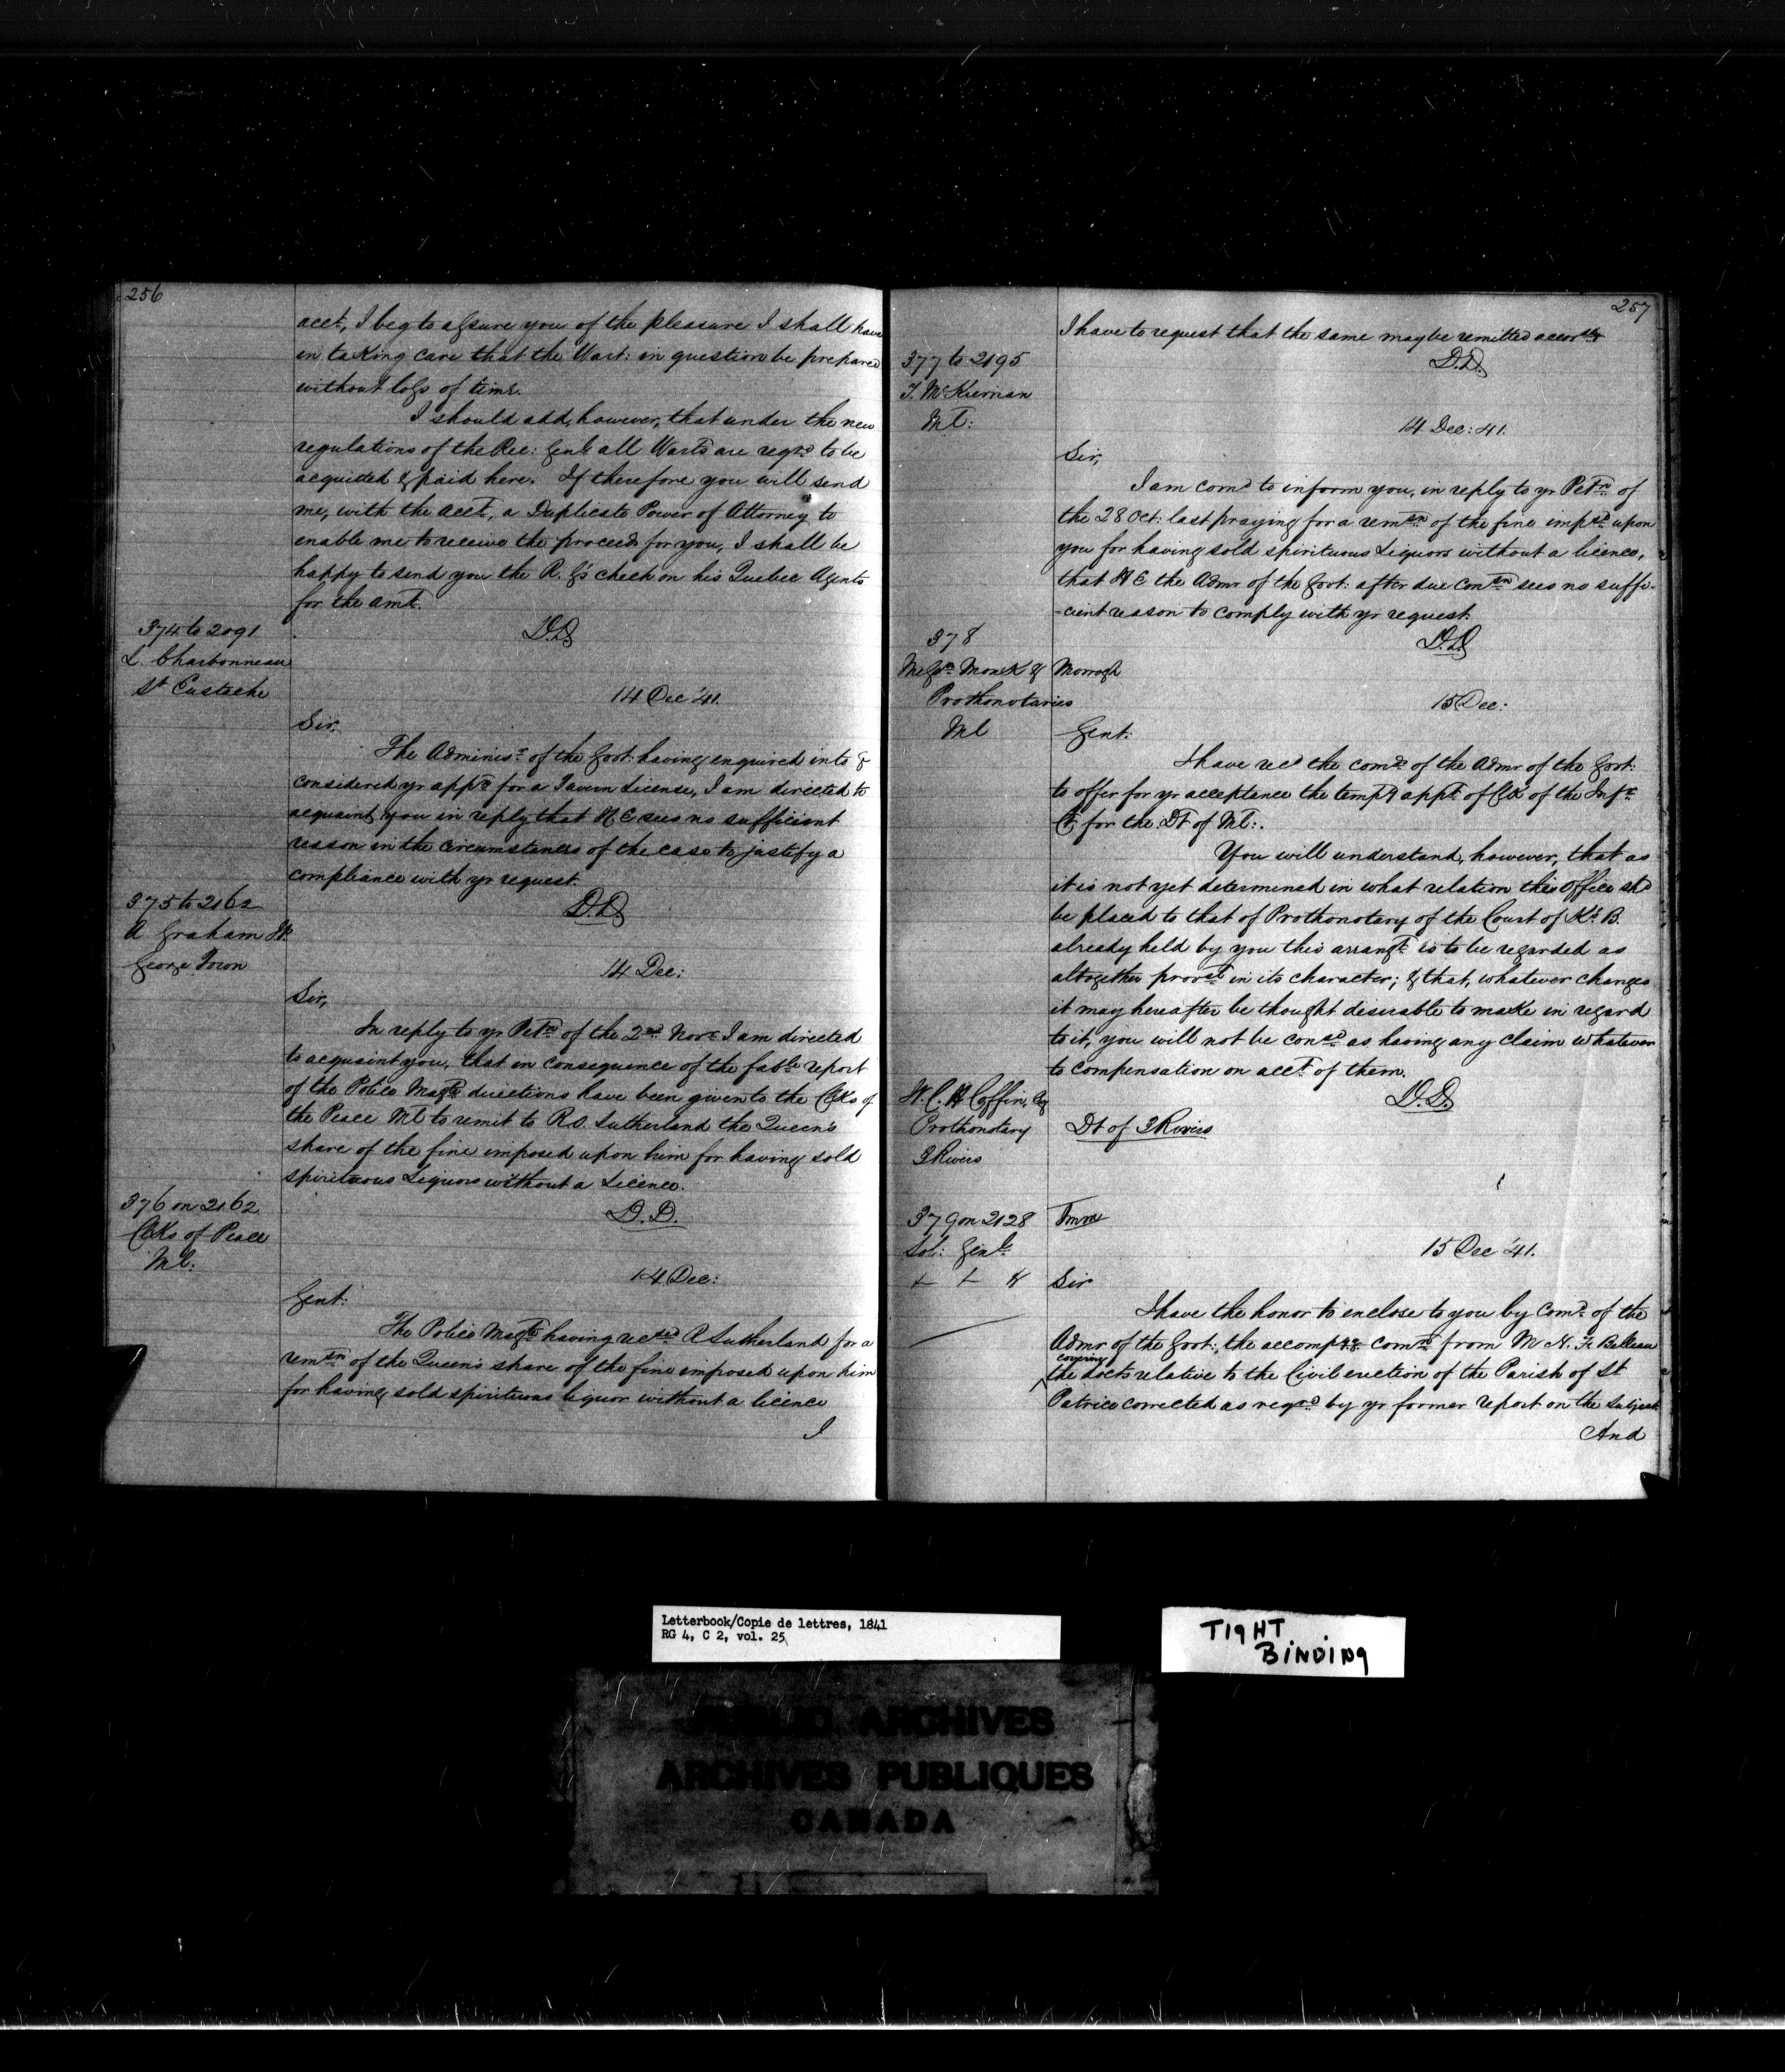 256
acct, I beg to assure you of the pleasure I shall have
in taking care that the Wart: in question be prepared
without loss of time.
I should add, however, that under the new
regulations of the Rec: Genl: all Warts are reqd to be
acquitted & paid here. If therefore you will send
me, with the acct, a Duplicate Power of Attorney to
enable me to receive the proceeds for you, I shall be
happy to send you the R. G's check on his Quebec Agents
for the amt.
D.D
374 to 2091
L. Charbonneau
St Eustache
14 Dec '41.
Sir,
The Adminisr of the Govt: having enquired into &
considered yr appn for a Tavern License, I am directed to
acquaint you in reply that H E sees no sufficient
reason in the circumstances of the case to justify a
compliance with yr request.
D.D
375 to 2162
A Graham
George Town
14 Dec:
Sir,
In reply to yr Petn of the 2nd Novr I am directed
to acquaint you, that in consequence of the fable report
of the Police Magte directions have been given to the Clks of
the Peace Ml to remit to Rd. Sutherland the Queen's
share of the fine imposed upon him for having sold
spirituous Liquors without a Licence.
D.D.
376 on 2162
Clks of Peace
Ml:
14 Dec:
Gent:
The Police Magte having recd R Sutherland for a
remsn of the Queen's share of the fine imposed upon him
for having sold spirituous liquor without a licence
I
257
I have to request that the same may be remitted accordly
D.D.
377 to 2195
T. McKiernan
Ml:
14 Dec: 41.
Sir,
I am comd to inform you, in reply to yr Petn of
the 28 Oct: last praying for a remsn of the fine impsd upon
you for having sold spirituous Liquors without a licence,
that H E the Admr of the Govt: after due consn sees no suffi-
-cient reason to comply with yr request.
D.D
378
Messrs Monk & Morrogh
Prothonotaries
Ml
15 Dec:
Gent:
I have recd the comds of the Admr of the Govt:
to offer for yr acceptance the tempy appt of Clk of the Infr
Ct for the Dt of Ml:.
You will understand, however, that as
it is not yet determined in what relation this office shd
be placed to that of Prothonotary of the Court of K's B.
already held by you this arrangt is to be regarded as
altogether provl in its character; & that, whatever changes
it may hereafter be thought desirable to make in regard
to it, you will not be consd as having any claim whatever
to compensation on acct of them.
D.D.
W. C. H Coffin, Esq
Prothonotary
3 Rivers
Dt of 3 Rivers
379 on 2128
Sol: Genl
15 Dec '41.
Sir
I have the honor to enclose to you by comd of the
Admr of the Govt:, the accompyg comn from Mr N. Fr Belleau
covering
the docts relative to the Civil erection of the Parish of St
Patrice corrected as reqrd by yr former report on the subject.
And
Letterbook/Copie de lettres, 1841
RG 4, C 2, vol. 25
TIGHT
BINDING
PUBLIC ARCHIVES
ARCHIVES PUBLIQUES
CANADA